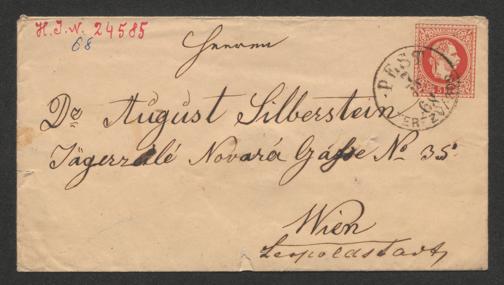 H. I. N. 24585
68
Herrn
Dr August Silberstein
Jägerzeile Novara Gasse No 35
Wien
Leopoldstadt
PEST